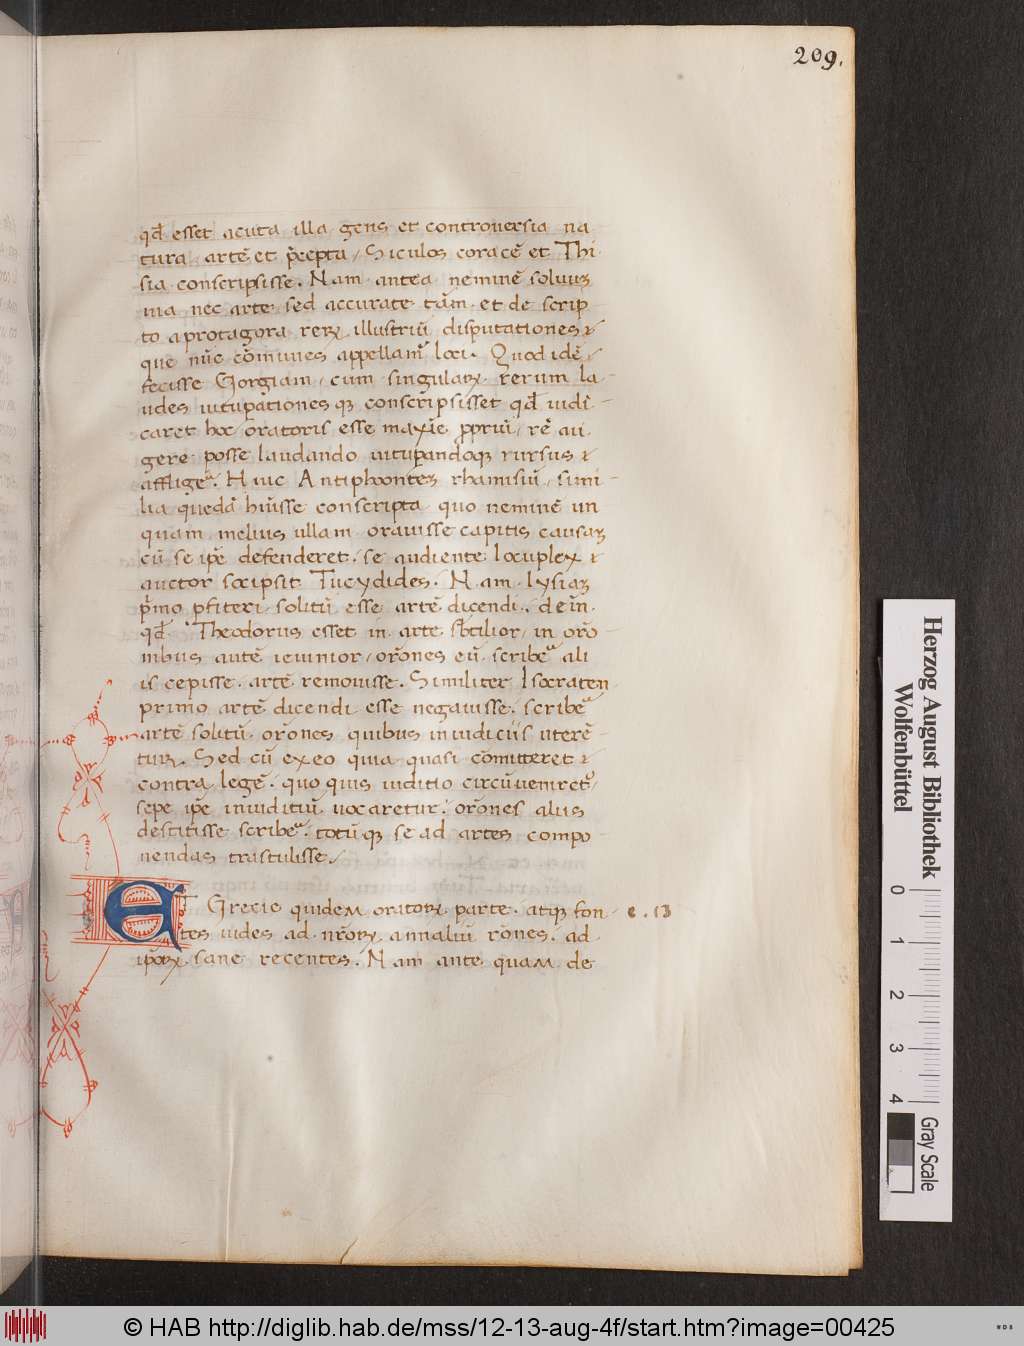 209.
qđ esset acuta illa gens et controuersia na
tura. artē et p̄cepta, Siculos coracē et Thi
sia conscripsisse. Nam antea neminē solutuꝫ
uia nec arte sed accurate tām. et de scrip
to a protagora reꝝ illustriū disputationes ⁊
que nūc cōmunes appellamꝰ loci. Quod idē
fecisse Gorgiam, cum singulaꝝ rerum la
udes uitupationesqꝫ conscripsisset qđ iudi
caret hoc oratoris esse maxīe ꝓpriū, rē au
gere posse laudando uitupandoqꝫ rursus ⁊
affligeᷣ. Huic Antiphontem rhamsiū, simi
lia quedā hūisse conscripta quo neminē un
quam melius ullam orauisse capitis causaꝫ
cū se ip̄e defenderet. se audiente locuplex ⁊
auctor scripsit Tucydides. Nam lysiaꝫ
pͥmo pfiteri. solitū esse artē dicendi. dein
qđ Theodorus esset in arte sbtilior, in orō
nibus autē ieiunior, orōnes eū scribeᷣ ali
is cepisse. artē remouisse. Similiter Isocraten
primo artē dicendi esse negauisse. scribeᷣ
artē solitū orōnes quibus in iudiciis uterē
tur. Sed cū ex eo quia quasi cōmitteret ⁊
contra legē. quo quis iuditio circūueniretᷣ
sepe ip̄e in iuditiū uocaretur. orōnes aliis
destitisse scribeᷣ. totūqꝫ se ad artes compo
nendas trastulisse.
ET Grecie quidem oratoꝝ parte. atqꝫ fon
c. 13
tes uides ad nr̄oꝝ annaliū rōnes. ad
ip̄oꝝ sane recentes. Nam ante quam de
Herzog August Bibliothek
Wolfenbüttel
0 1 2 3 4
Gray Scale
© HAB http://diglib.hab.de/mss/12-13-aug-4f/start.htm?image=00425
WDB